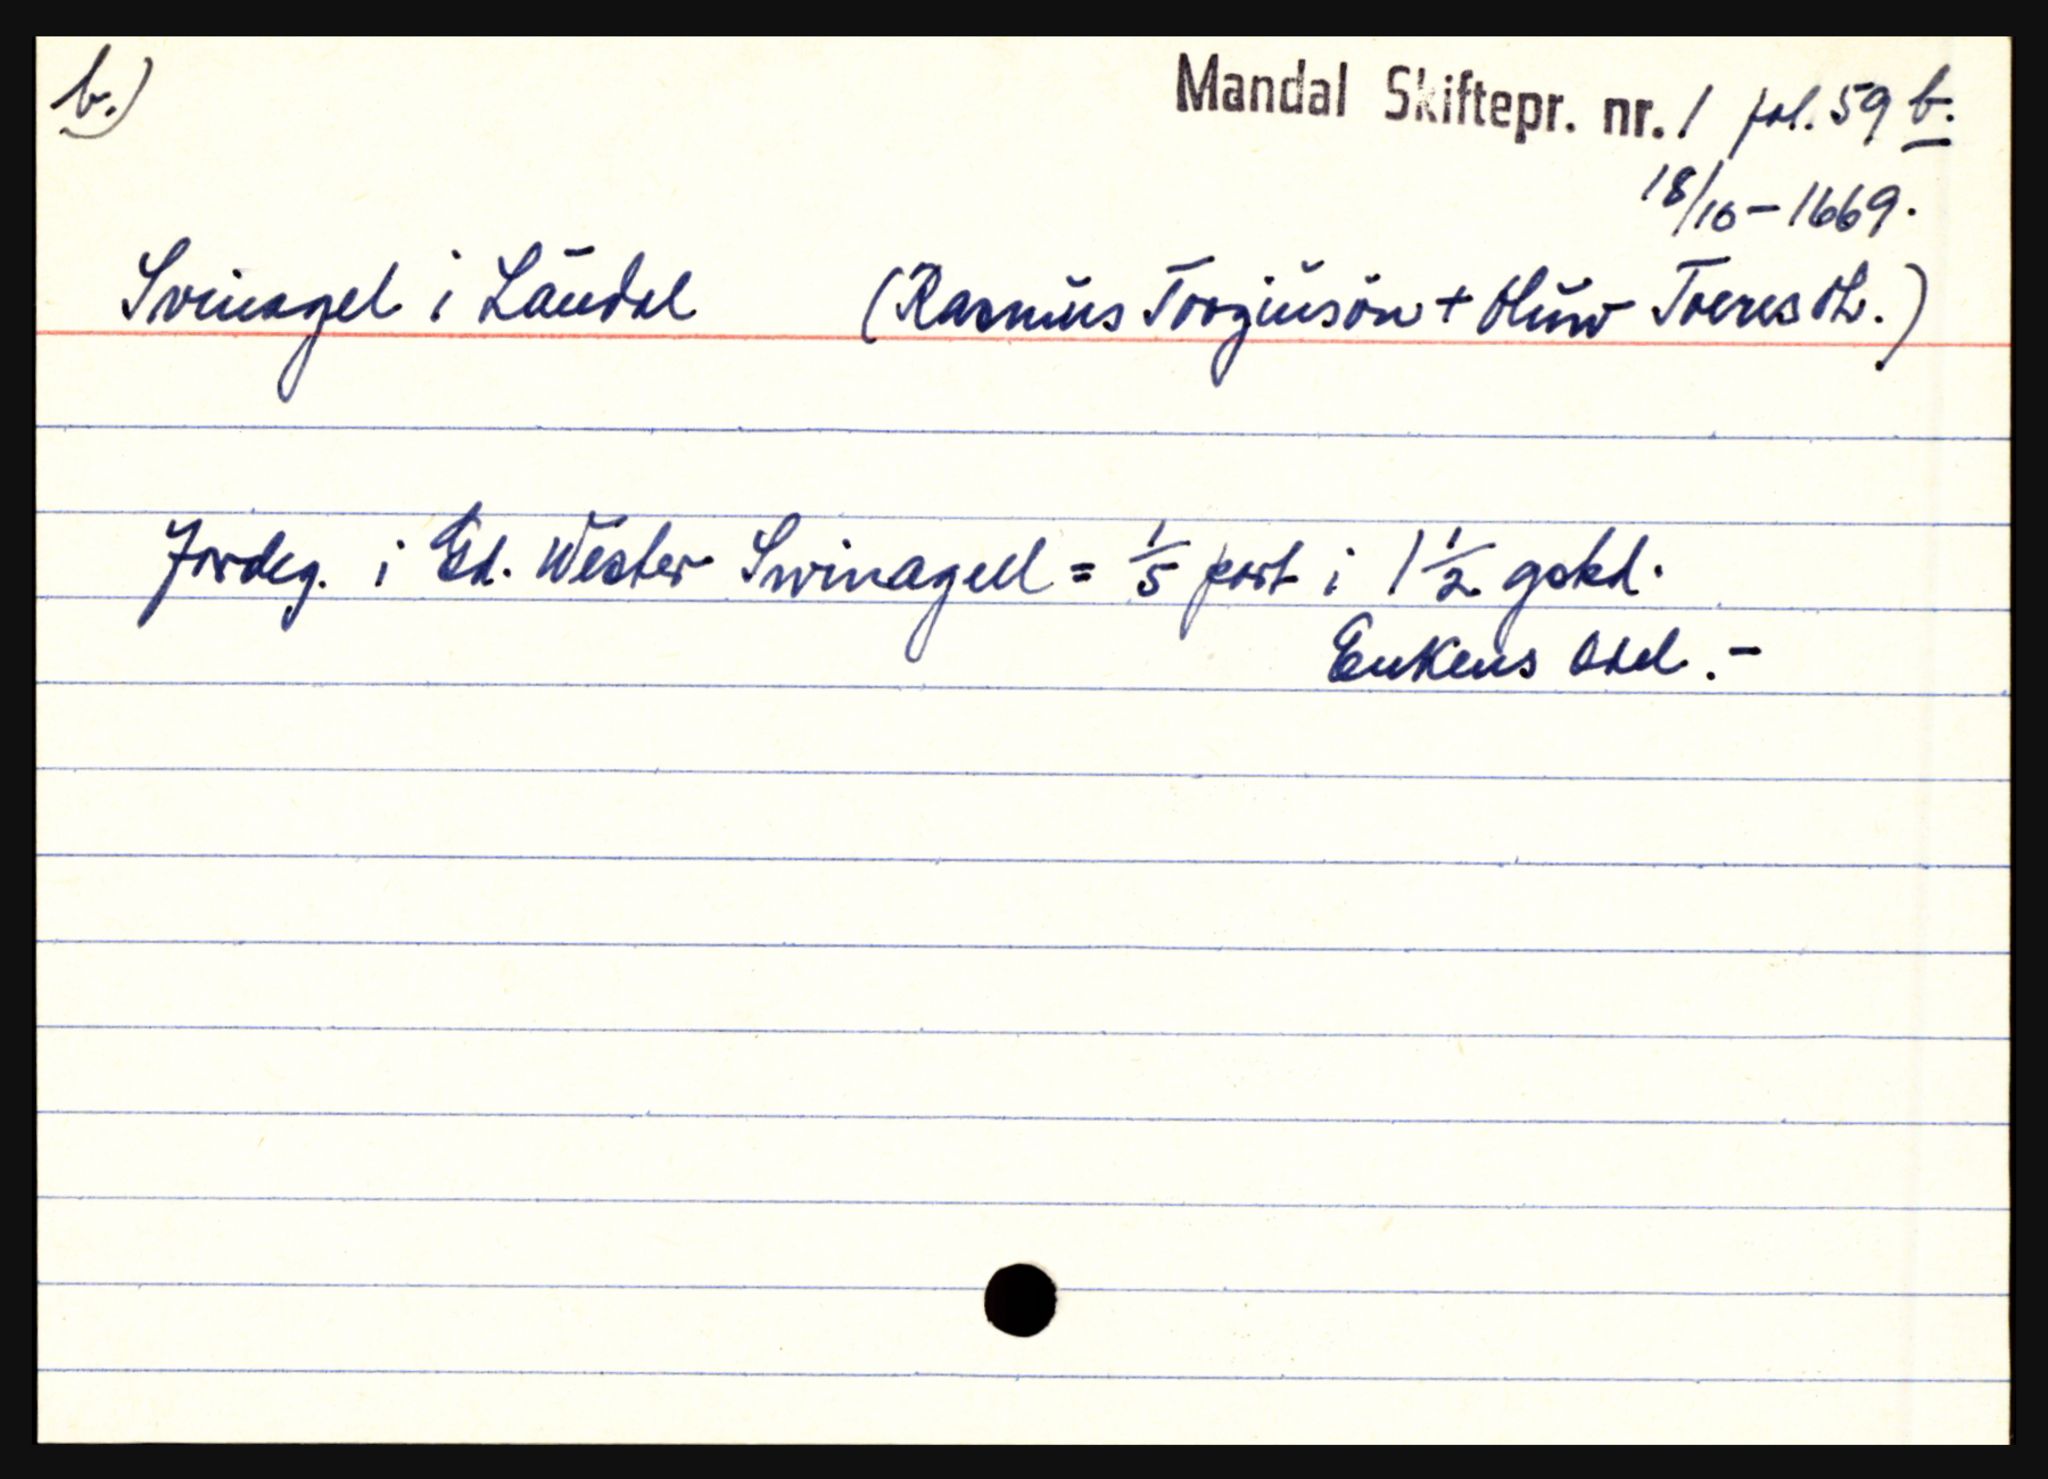 b.)
Mandal Skiftepr. nr. 1 fol. 59 b.
18/10-1669.
Svinagel i Laudal (Rasmus Torgiusøn + Oluw Toresdt.)
Jordeg. i Ed. Wester Swinagell = 1/5 part i 1 1/2 gskd.
Enkens Odel.-